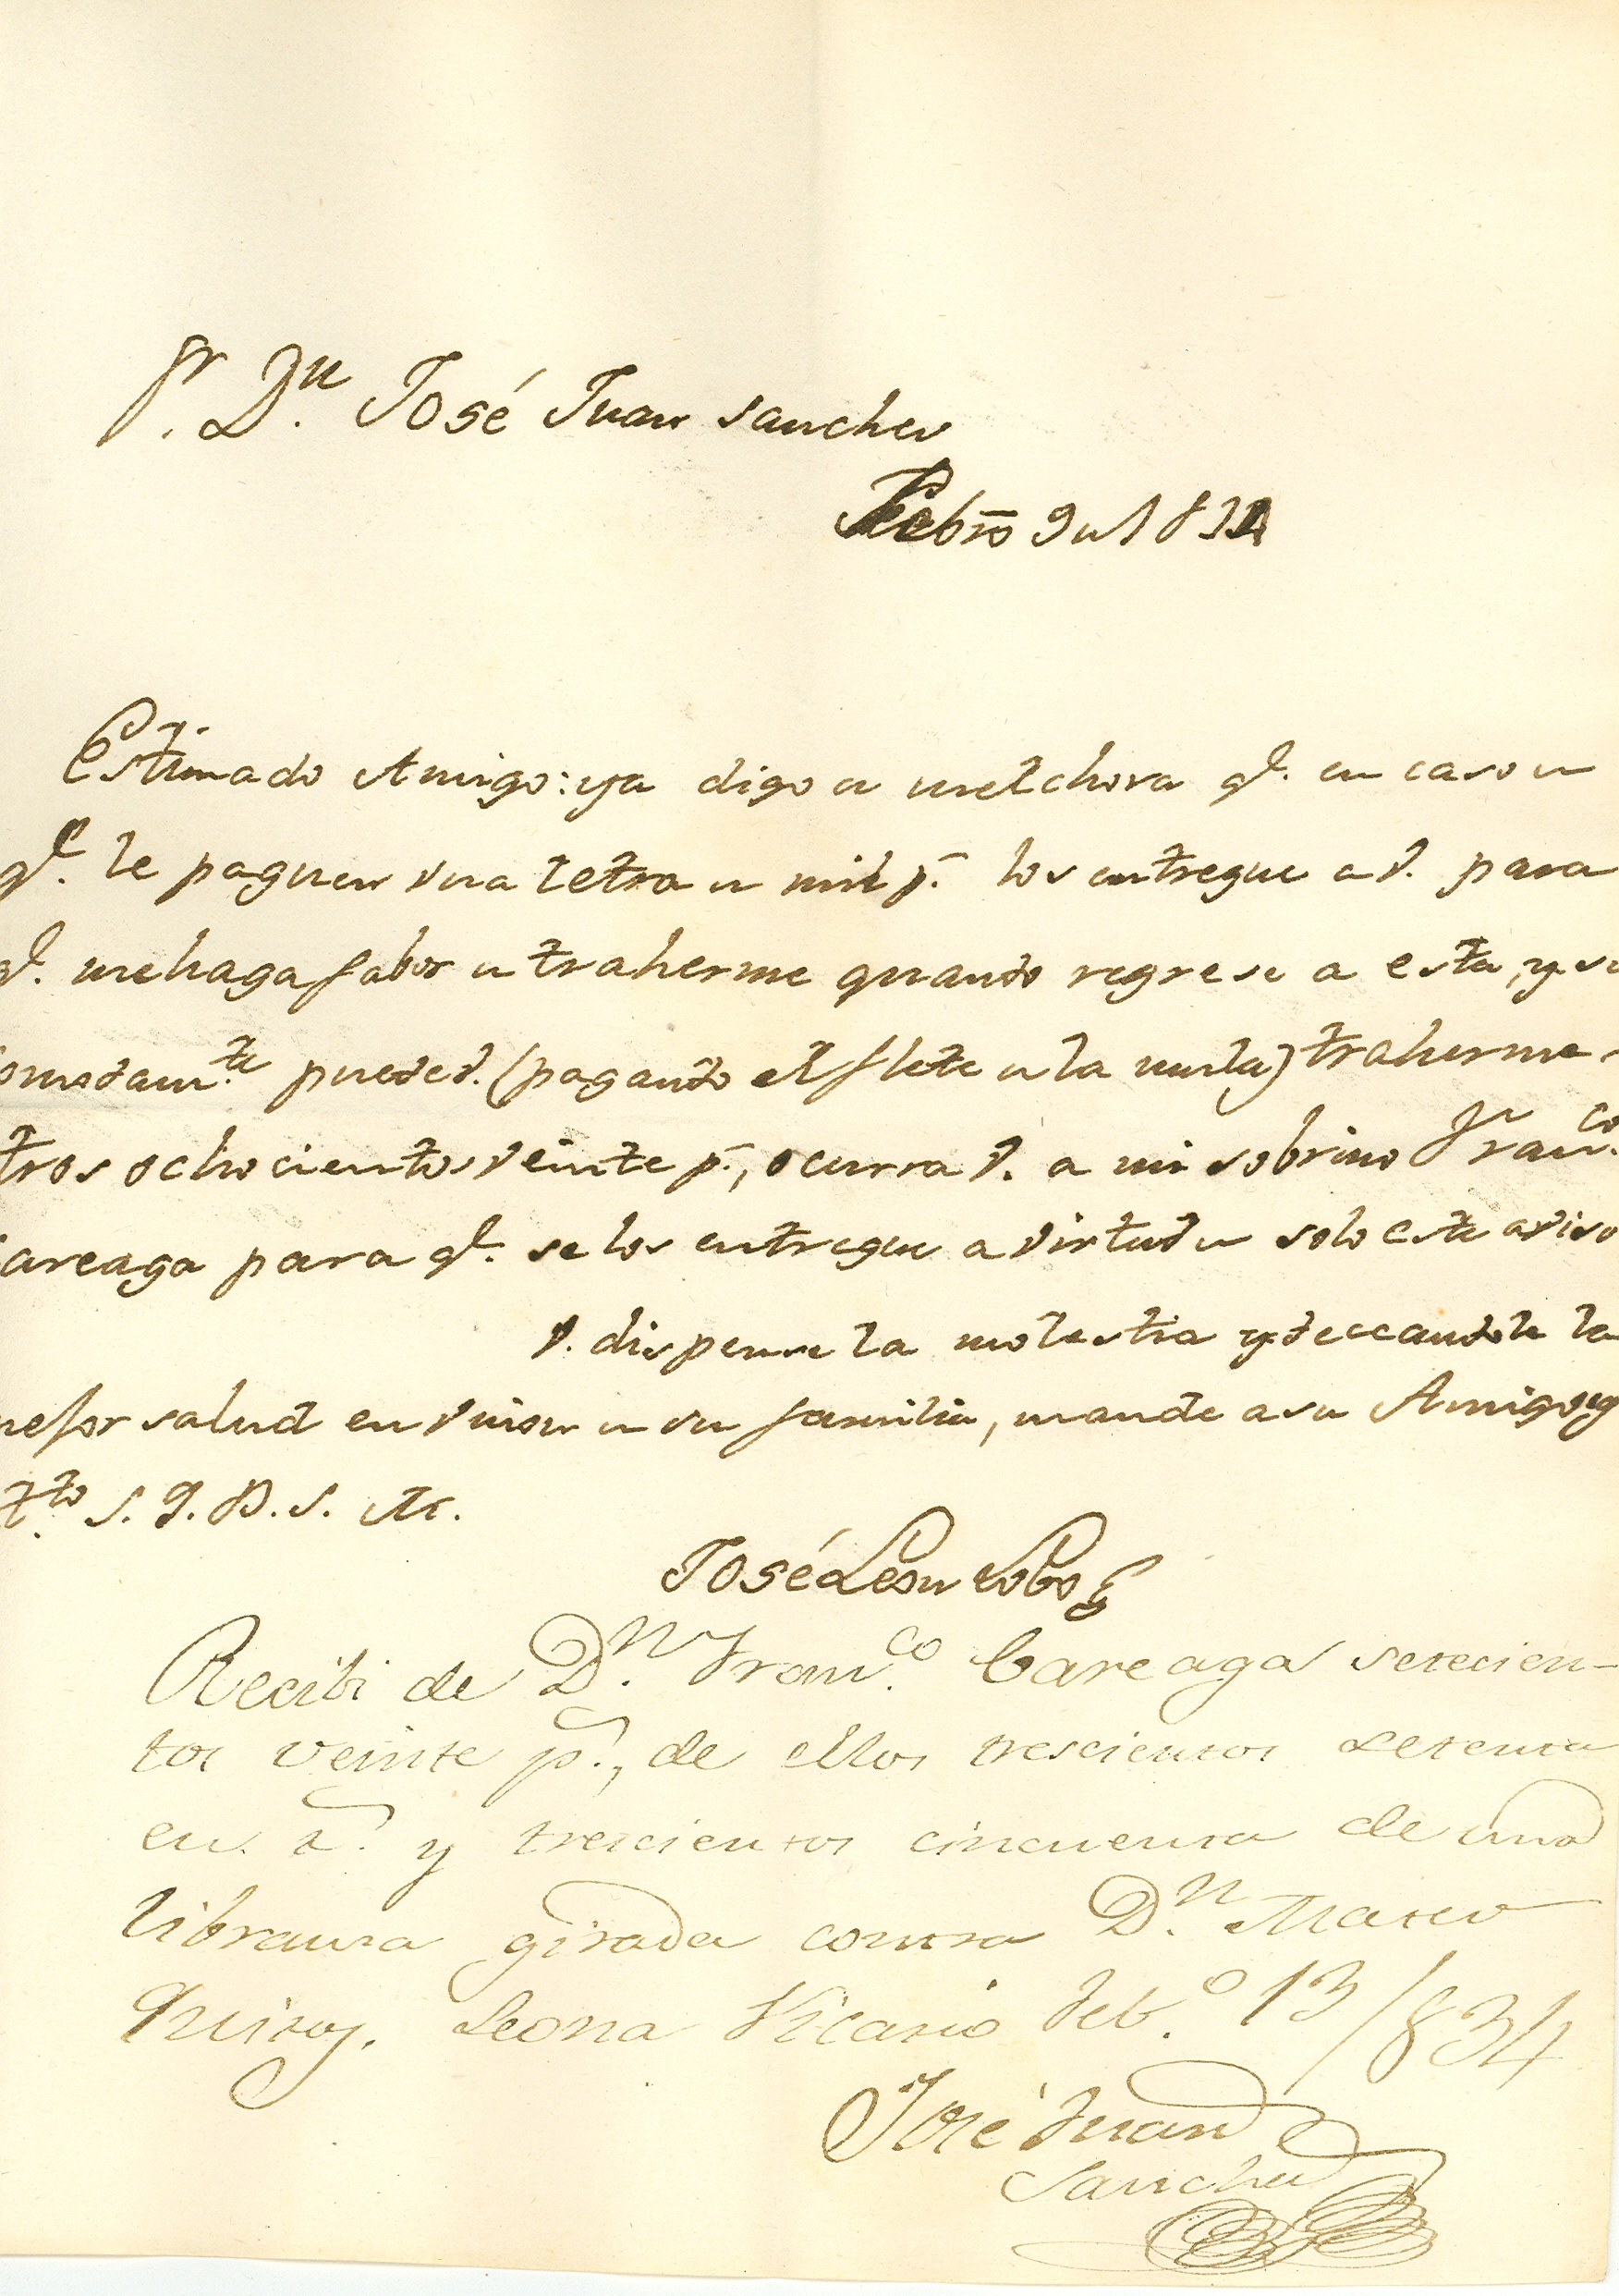 Sr. Dn. José Juan sanchez
Febro 9 de 1834
Estimado Amigo: ya digo a melchora qe. en caso de
qe. le paguen vna letra de mil ps. los entregue a V. para
qe. mehaga fabor de traherme quando regrese a esta, y si
omodamte. puede V. (pagando el flete de la mula) traherme
tros ochocientos veinte ps., ocurra V. a mi sobrino Franco.
areaga para qe. se los entregue a virtud de solo este aviso
V. dispense la molestia y deceandole la
nejor salud en vnion de su familia, mande a su Amigo y
Atto. S. Q. B. S. M.
José Leon Lobo
Recibi de Dn. Franco. Careaga setecien-
tos veinte ps., de ellos trescientos setenta
en. rs. y trescientos cincuenta de una
libranza girada contra Dn. Mateo
Quiroz. Leona Vicario Febo. 13/834
José Juan
Sanchez